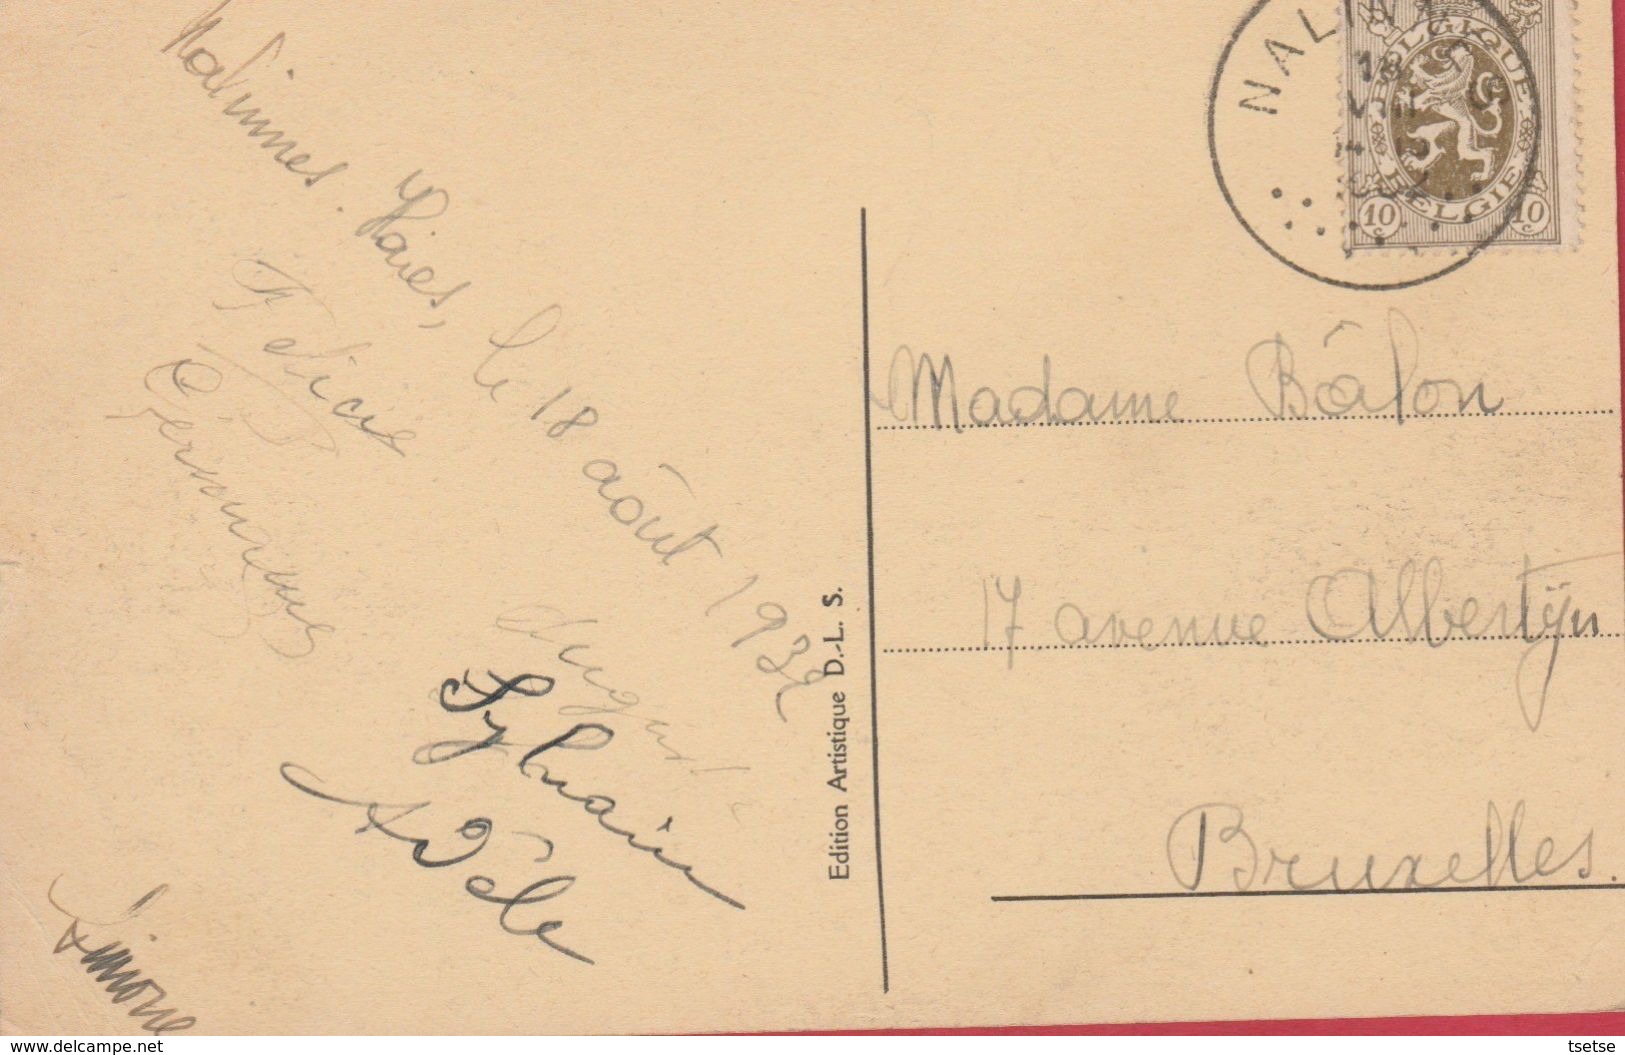 Nalinnes. Haies, le 18 août 1932
Félicie
Germaine
August
Sylvain
Adèle
Simone
Edition Artistique D.-L. S.
NALIN
BELGIQUE
BELGIE
10 c 10 c
Madame Bâlon
17 avenue Albertijn
Bruxelles.
www.delcampe.net
tsetse